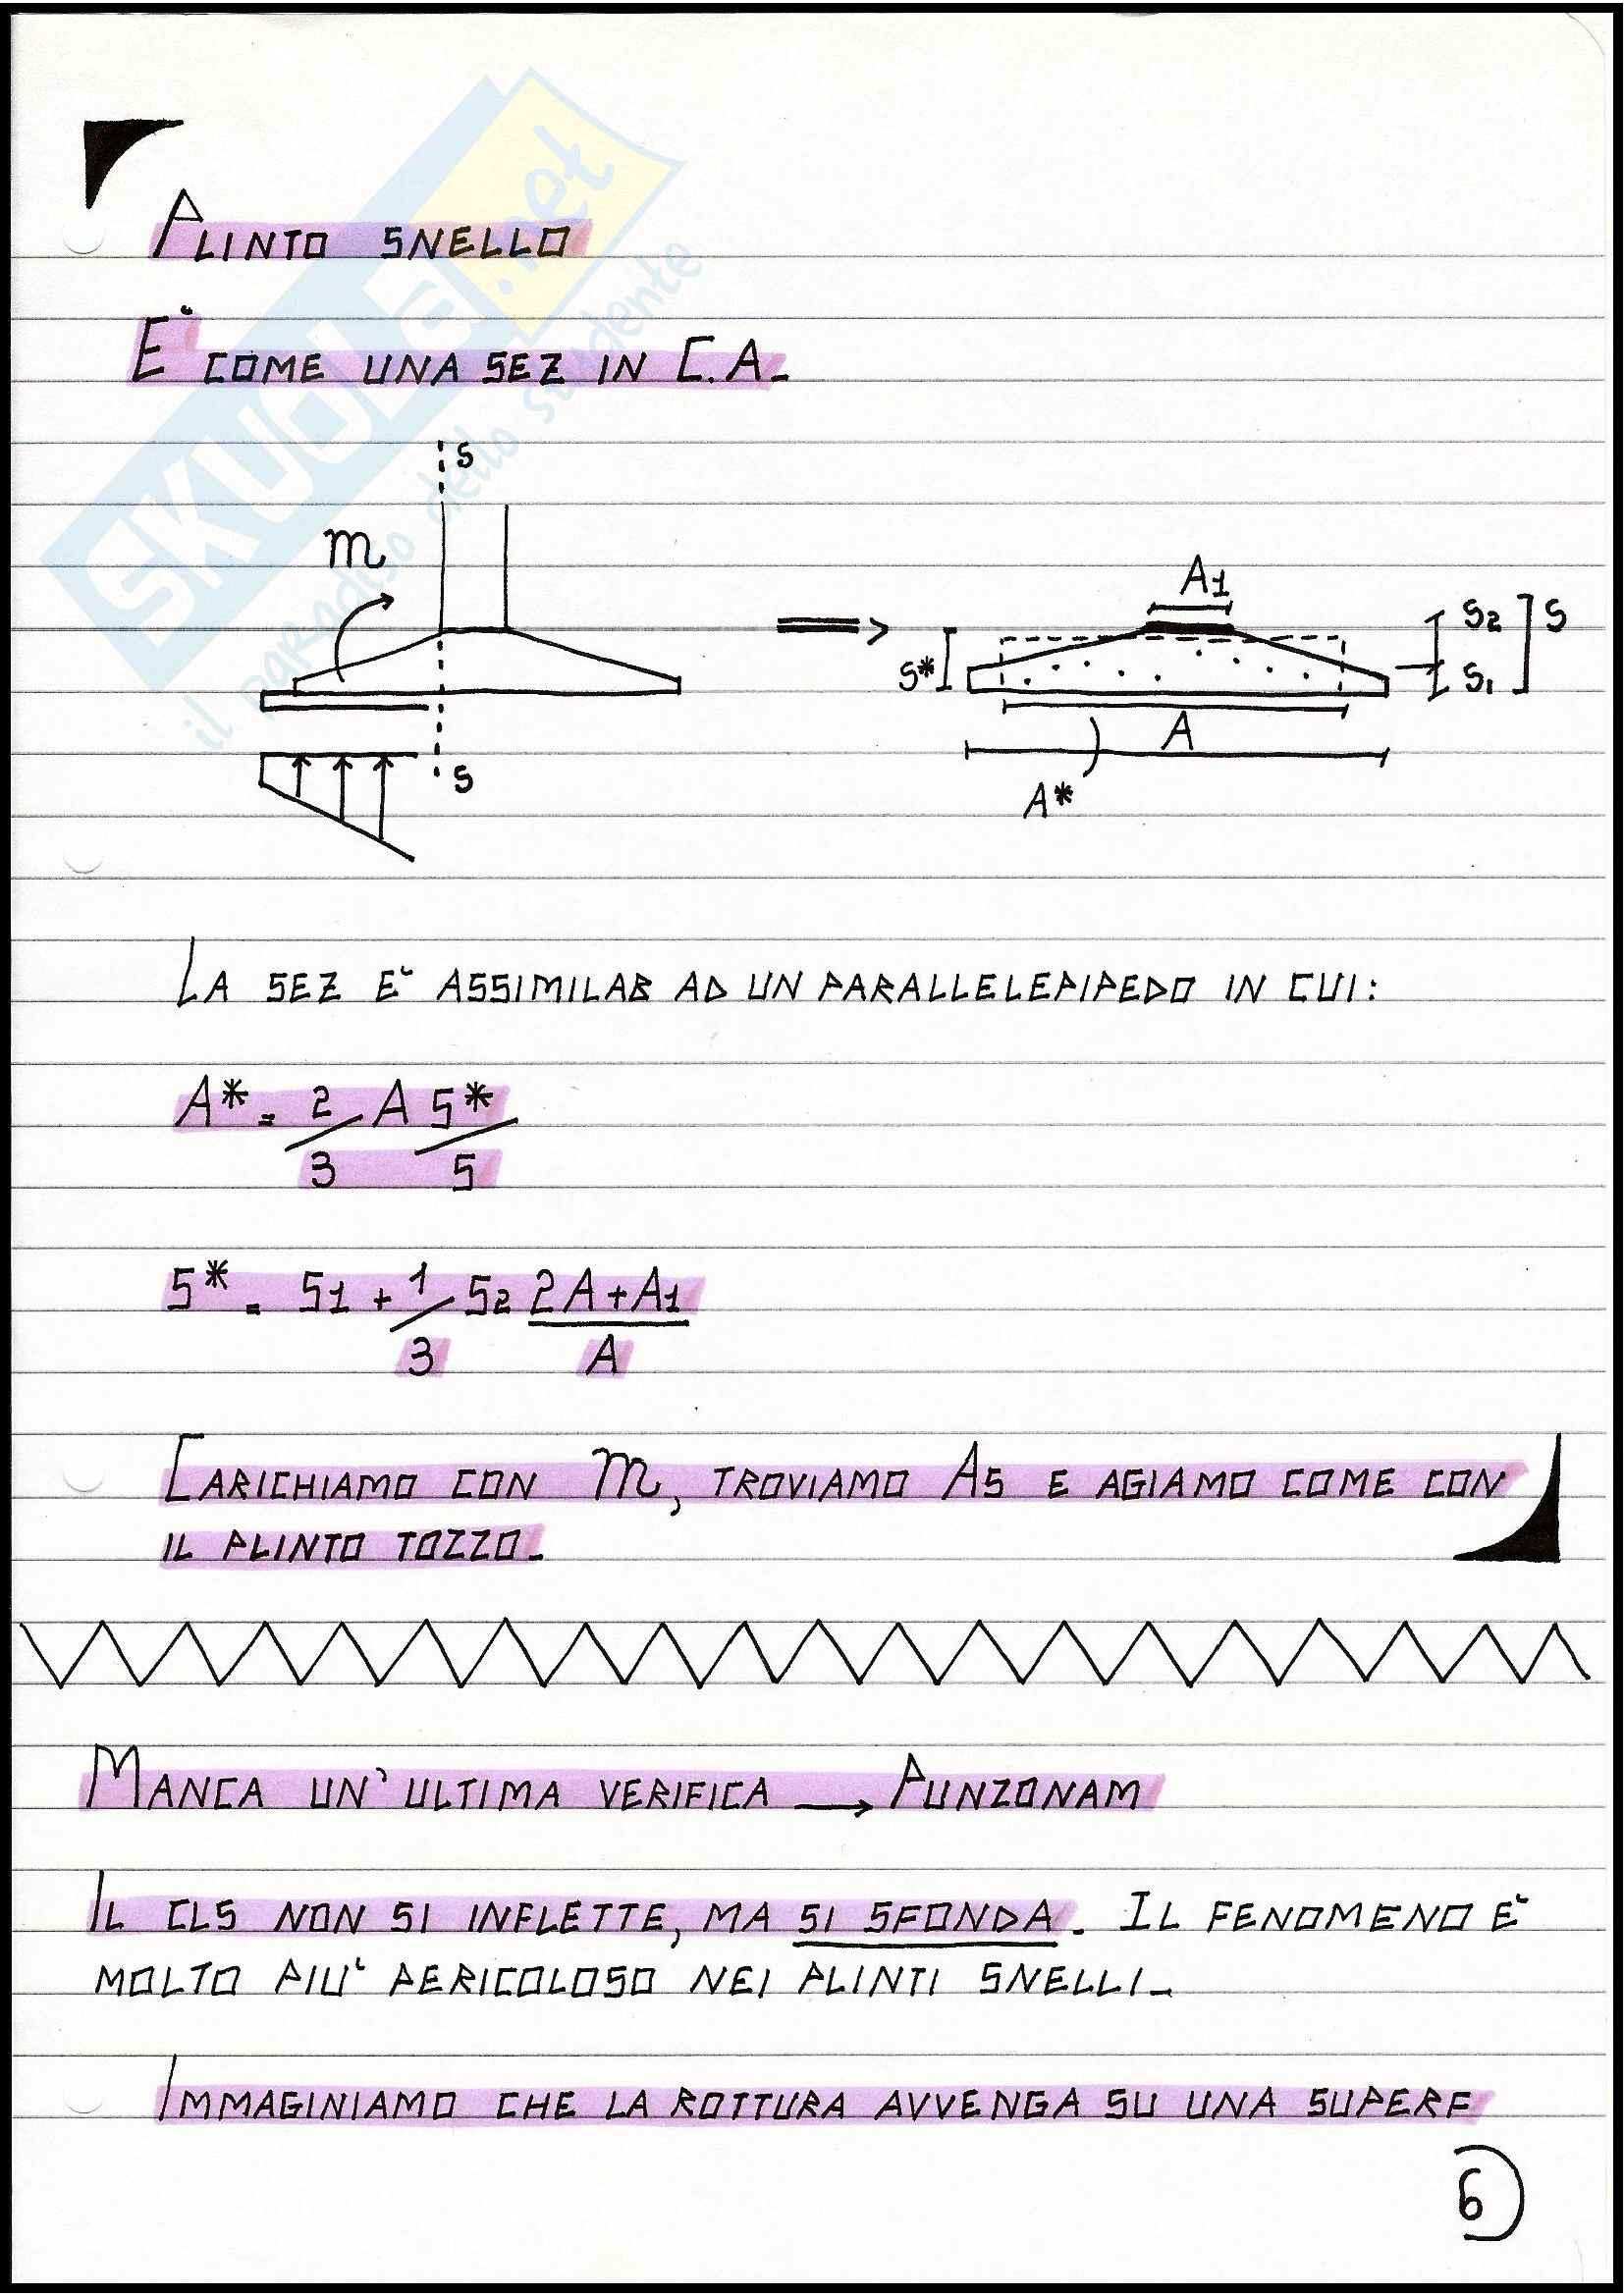 PLINTO SNELLO
E' COME UNA SEZ IN C.A.
S
m
S
A1
S*
S2
S
S1
A
A*
LA SEZ E' ASSIMILAB AD UN PARALLELEPIPEDO IN CUI:
A* = 2/3 A S*/S
S* = S1 + 1/3 S2 (2A+A1)/A
CARICHIAMO CON M, TROVIAMO AS E AGIAMO COME CON
IL PLINTO TOZZO.
MANCA UN'ULTIMA VERIFICA → PUNZONAM
IL CLS NON SI INFLETTE, MA SI SFONDA. IL FENOMENO E'
MOLTO PIU' PERICOLOSO NEI PLINTI SNELLI.
IMMAGINIAMO CHE LA ROTTURA AVVENGA SU UNA SUPERF
6
SKUOLA.net
il paradiso dello studente